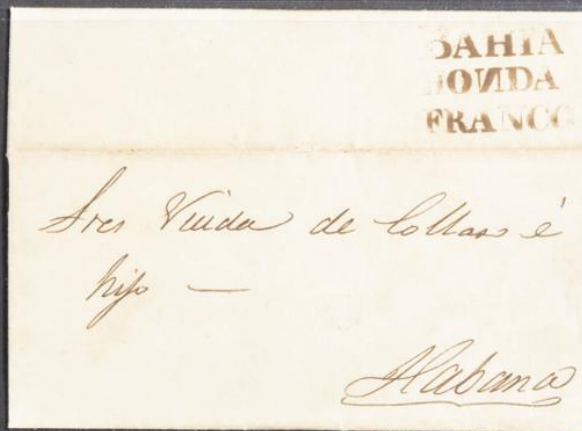 BAHIA
HONDA
FRANCO
Sres Viuda de é
hijo —
Habana